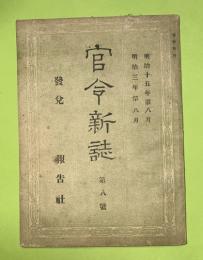 明治十五年第八月
明治三年第八月
官令新誌
第八號
發兌
報告社